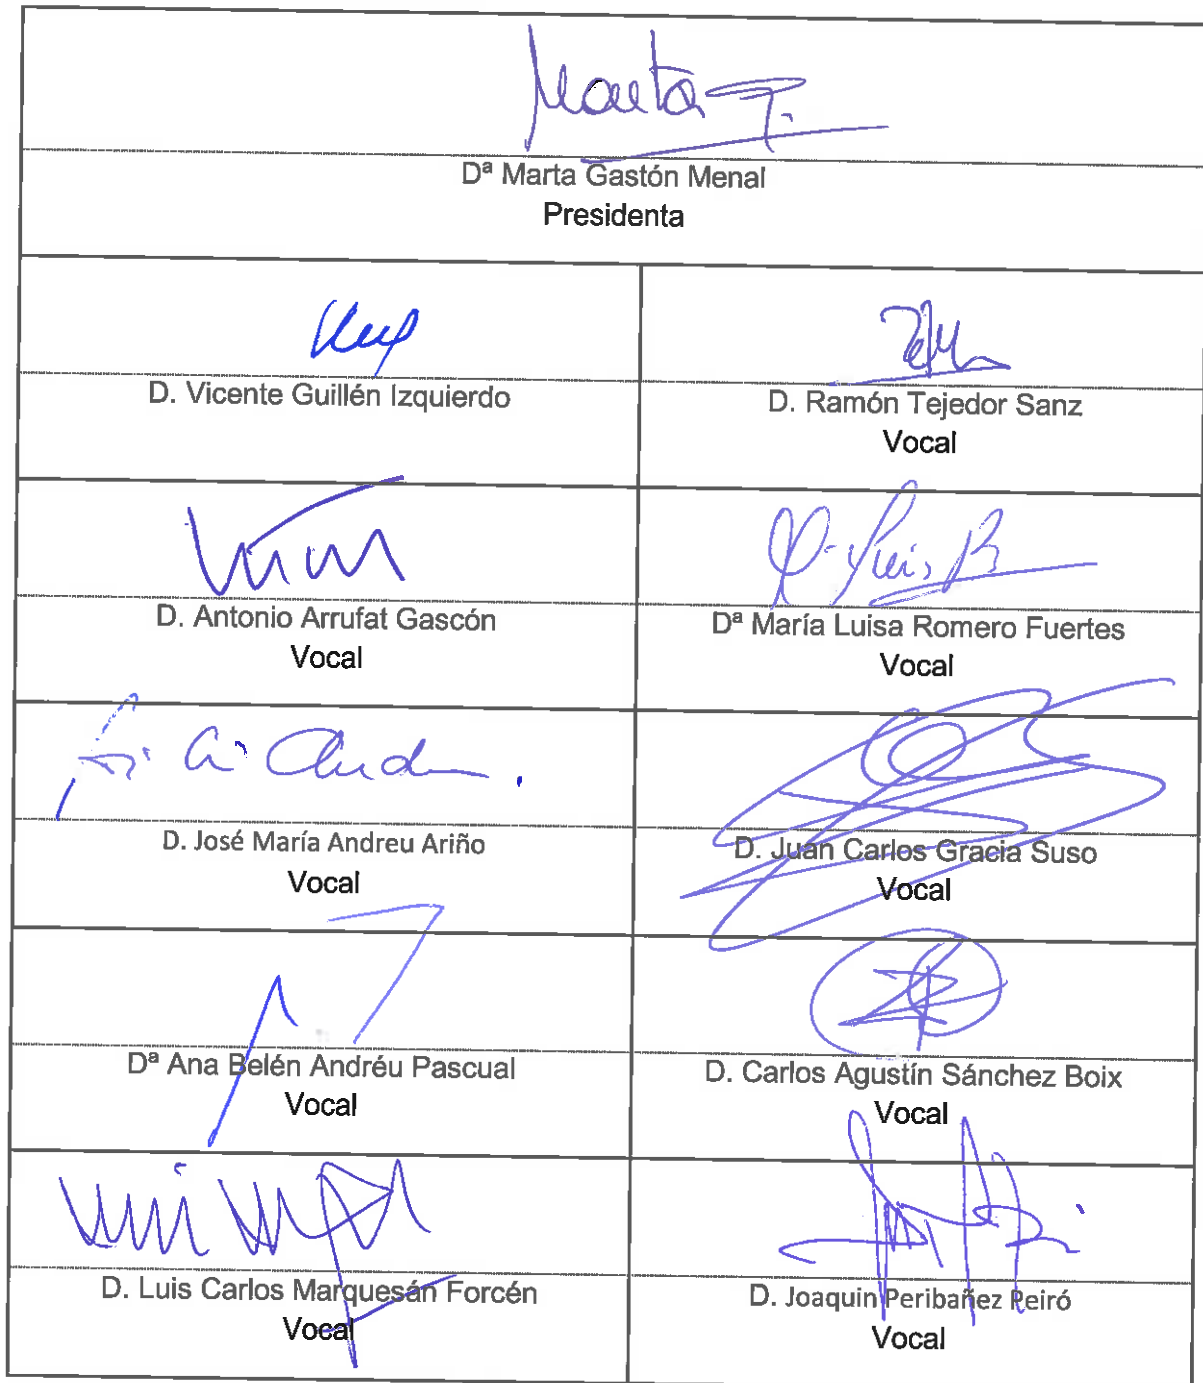 Marta G.
Dª Marta Gastón Menal
Presidenta
D. Vicente Guillén Izquierdo
D. Ramón Tejedor Sanz
Vocal
D. Antonio Arrufat Gascón
Vocal
Dª María Luisa Romero Fuertes
Vocal
D. José María Andreu Ariño
Vocal
D. Juan Carlos Gracia Suso
Vocal
Dª Ana Belén Andréu Pascual
Vocal
D. Carlos Agustín Sánchez Boix
Vocal
D. Luis Carlos Marquesán Forcén
Vocal
D. Joaquin Peribañez Peiró
Vocal